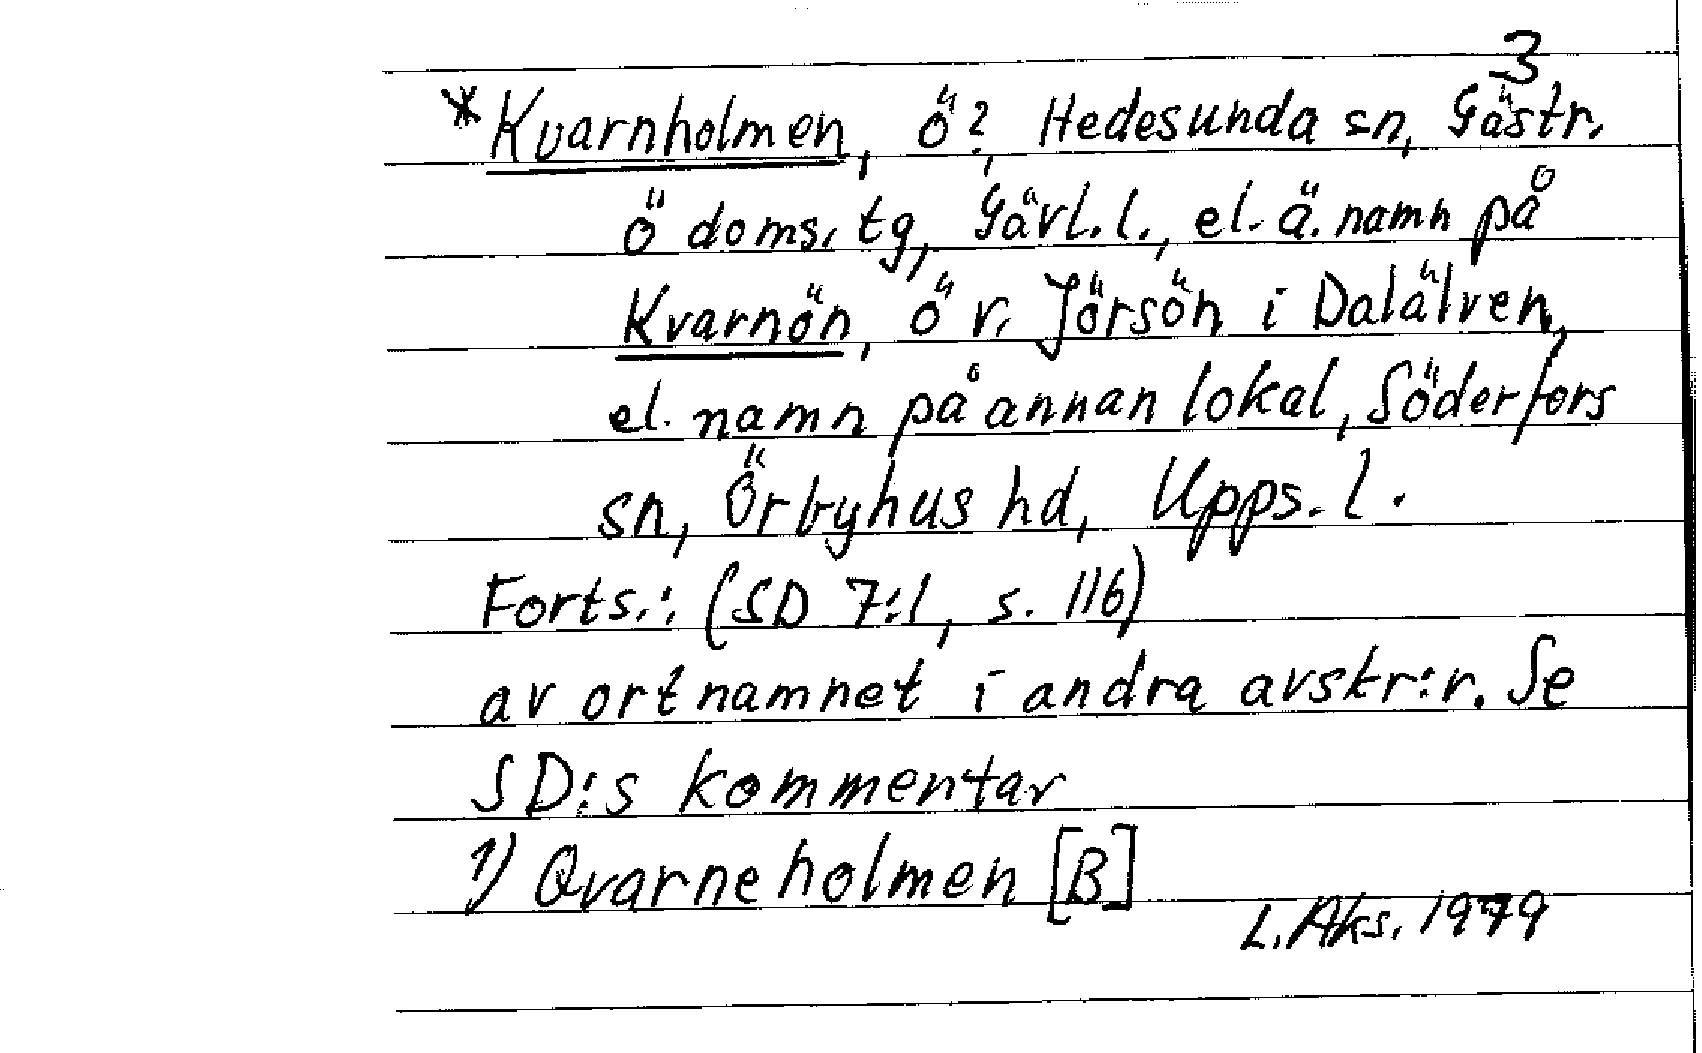 3
*Kvarnholmen, ö?, Hedesunda sn, Gästr.
ö doms. tg, Gävl. l., el. ä. namn på
Kvarnön, ö v. Jörsön i Dalälven,
el. namn på annan lokal, Söderfors
sn, Örbyhus hd, Upps. l.
Forts.: (SD 7:1, s. 116)
av ortnamnet i andra avskr:r. Se
SD:s kommentar
1) Qvarneholmen [B]
L. Aks. 1979